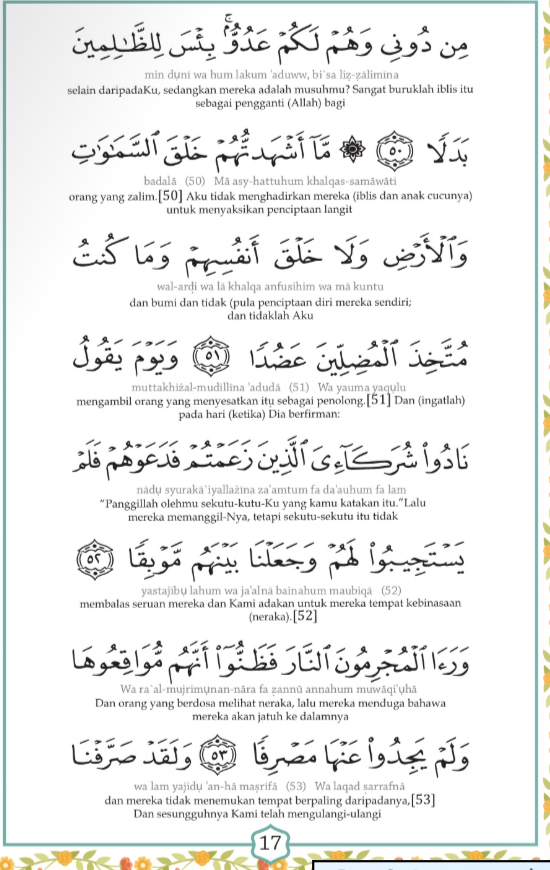 مِن دُونِي وَهُمْ لَكُمْ عَدُوٌّ ۚ بِئْسَ لِلظَّٰلِمِينَ
mīn dụni wa hum lakum 'aduww, bi`sa liẓ-ẓālimīna
selain daripadaKu, sedangkan mereka adalah musuhmu? Sangat buruklah iblis itu
sebagai pengganti (Allah) bagi
بَدَلًا ٥٠ ۞ مَّآ أَشْهَدتُّهُمْ خَلْقَ ٱلسَّمَٰوَٰتِ
badalā (50) Mā asy-hattuhum khalqas-samāwāti
orang yang zalim.[50] Aku tidak menghadirkan mereka (iblis dan anak cucunya)
untuk menyaksikan penciptaan langit
وَٱلْأَرْضِ وَلَا خَلْقَ أَنفُسِهِمْ وَمَا كُنتُ
wal-arḍi wa lā khalqa anfusihim wa mā kuntu
dan bumi dan tidak (pula penciptaan diri mereka sendiri;
dan tidaklah Aku
مُتَّخِذَ ٱلْمُضِلِّينَ عَضُدًا ٥١ وَيَوْمَ يَقُولُ
muttakhiżal-mudillīna 'adudā (51) Wa yauma yaqụlu
mengambil orang yang menyesatkan itu sebagai penolong.[51] Dan (ingatlah)
pada hari (ketika) Dia berfirman:
نَادُوا۟ شُرَكَآءِىَ ٱلَّذِينَ زَعَمْتُمْ فَدَعَوْهُمْ فَلَمْ
nādụ syurakā`iyallażīna za'amtum fa da'auhum fa lam
"Panggillah olehmu sekutu-kutu-Ku yang kamu katakan itu."Lalu
mereka memanggil-Nya, tetapi sekutu-sekutu itu tidak
يَسْتَجِيبُوا۟ لَهُمْ وَجَعَلْنَا بَيْنَهُم مَّوْبِقًا ٥٢
yastajibụ lahum wa ja'alnā bainahum maubiqā (52)
membalas seruan mereka dan Kami adakan untuk mereka tempat kebinasaan
(neraka).[52]
وَرَءَا ٱلْمُجْرِمُونَ ٱلنَّارَ فَظَنُّوٓا۟ أَنَّهُم مُّوَاقِعُوهَا
Wa ra`al-mujrimụnan-nāra fa ẓannū annahum muwāqi'ụhā
Dan orang yang berdosa melihat neraka, lalu mereka menduga bahawa
mereka akan jatuh ke dalamnya
وَلَمْ يَجِدُوا۟ عَنْهَا مَصْرِفًا ٥٣ وَلَقَدْ صَرَّفْنَا
wa lam yajidụ 'an-hā maṣrifā (53) Wa laqad ṣarrafnā
dan mereka tidak menemukan tempat berpaling daripadanya,[53]
Dan sesungguhnya Kami telah mengulangi-ulangi
17